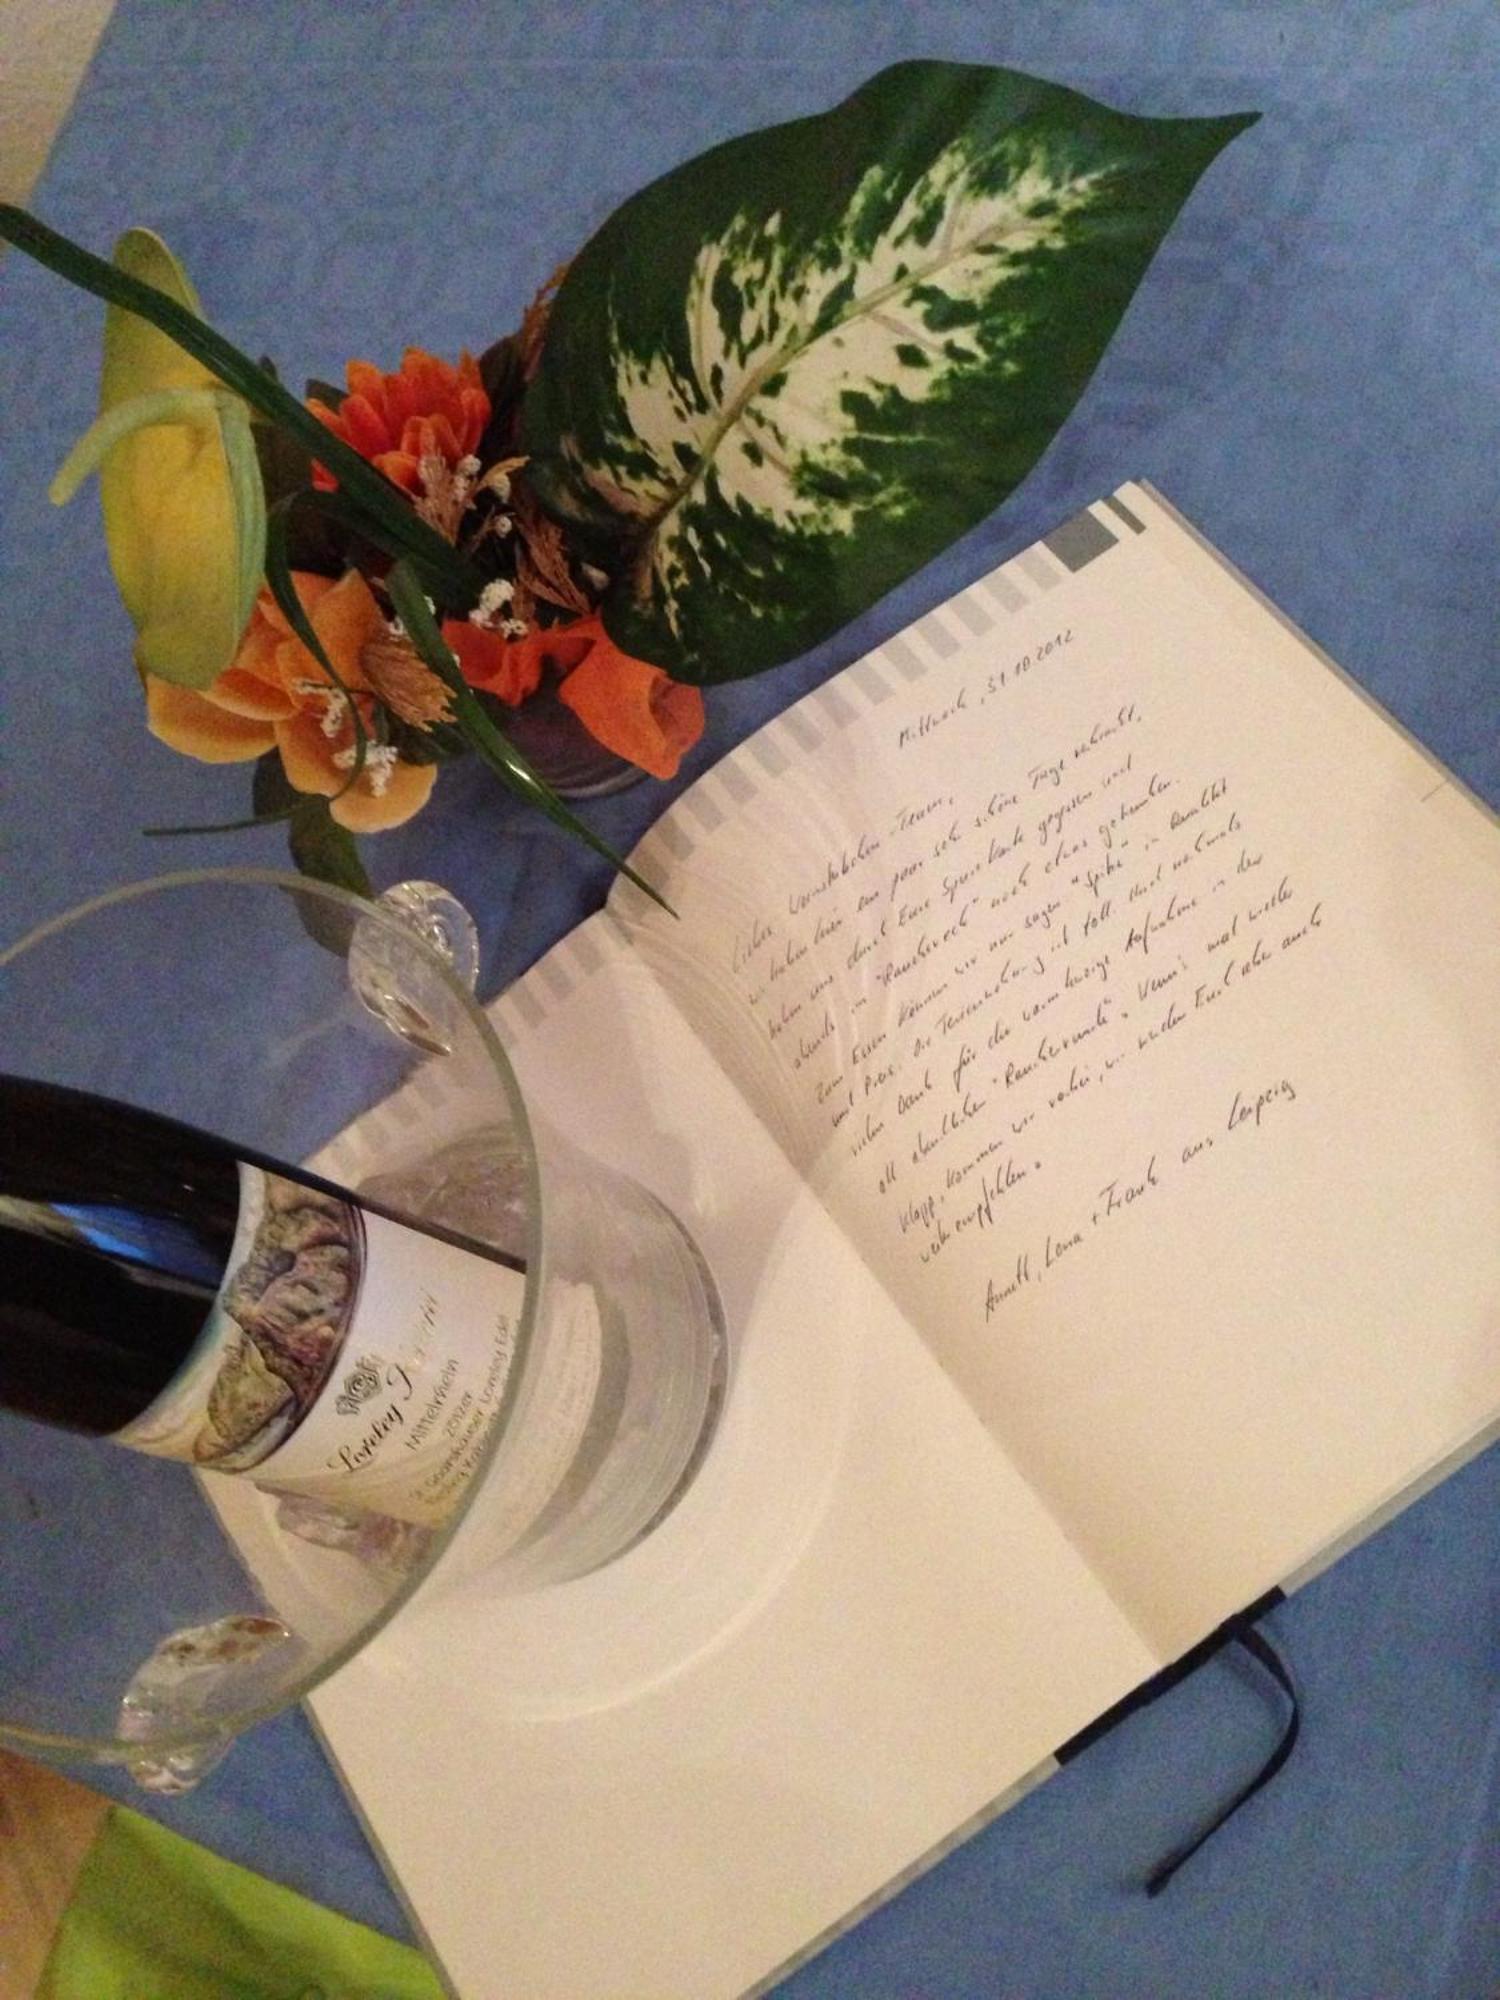 Mittwoch, 31.10.2012
Liebes Weinstübchen-Team,
wir haben hier ein paar sehr schöne Tage verbracht,
haben uns durch Eure Speisekarte gegessen und
abends im "Rauchereck" noch etwas getrunken.
Zum Essen können wir nur sagen "Spitze" in Qualität
und Preis. Die Ferienwohnung ist toll. Und nochmals
vielen Dank für die warmherzige Aufnahme in der
allabendlichen "Raucherrunde". Wenn's mal wieder
klappt, kommen wir vorbei, wir werden Euch aber auch
weiterempfehlen.
Annett, Lena + Frank aus Leipzig
Loreley
Mittelrhein
2012er
St. Goarshausener Loreley Edel
Riesling